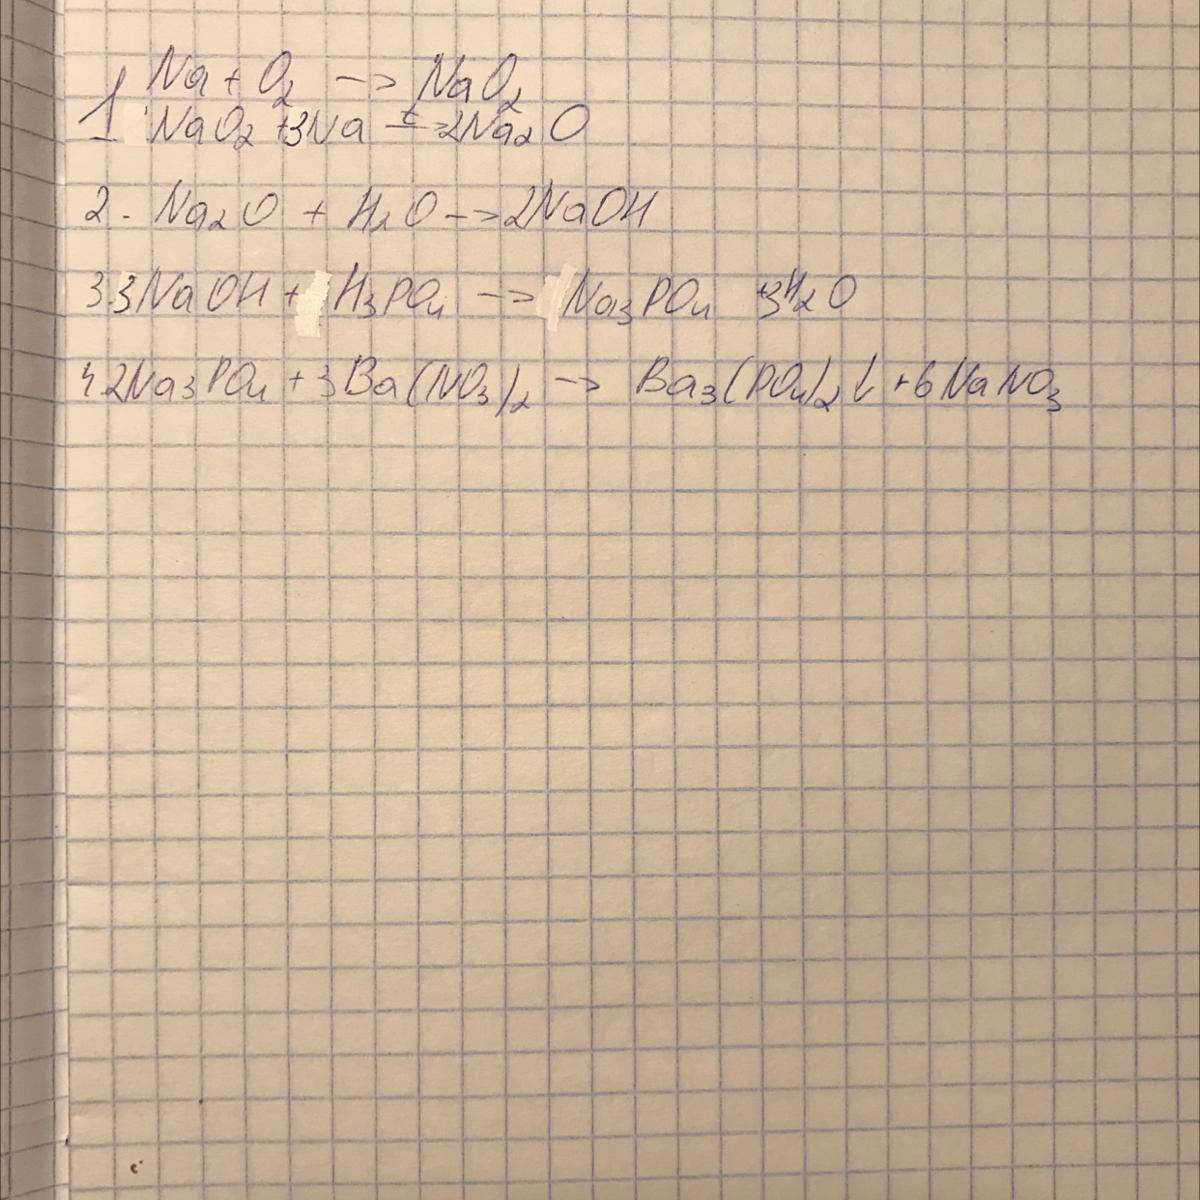 1 Na + O₂ —> NaO₂
NaO₂ +3Na —t—> 2Na₂O
2. Na₂O + H₂O —> 2NaOH
3.3NaOH + H₃PO₄ —> Na₃PO₄ +3H₂O
4.2Na₃PO₄ + 3Ba(NO₃)₂ —> Ba₃(PO₄)₂↓ +6NaNO₃